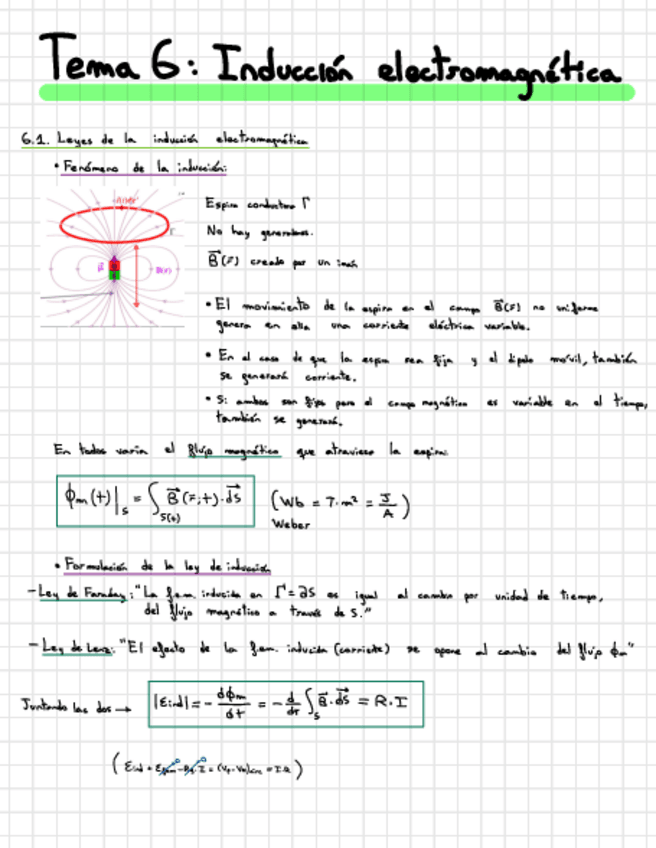 Tema 6: Inducción electromagnética
6.1. Leyes de la inducción electromagnética
• Fenómeno de la inducción:
Espira conductora Γ
No hay generadores.
B⃗(r⃗) creado por un imán
B(r)
• El movimiento de la espira en el campo B⃗(r⃗) no uniforme
genera en ella una corriente eléctrica variable.
• En el caso de que la espira sea fija y el dipolo móvil, también
se generará corriente.
• Si ambos son fijos pero el campo magnético es variable en el tiempo,
también se generará.
En todos varía el flujo magnético que atraviesa la espira.
ϕm(t)|s = ∫S(t) B⃗(r⃗;t)·ds⃗ (Wb = T·m² = J/A)
Weber
• Formulación de la ley de inducción
- Ley de Faraday: "La f.e.m. inducida en Γ=∂S es igual al cambio por unidad de tiempo,
del flujo magnético a través de S."
- Ley de Lenz: "El efecto de la f.e.m. inducida (corriente) se opone al cambio del flujo ϕm"
Juntando las dos → |εind| = - dϕm/dt = - d/dt ∫s B⃗·ds⃗ = R·I